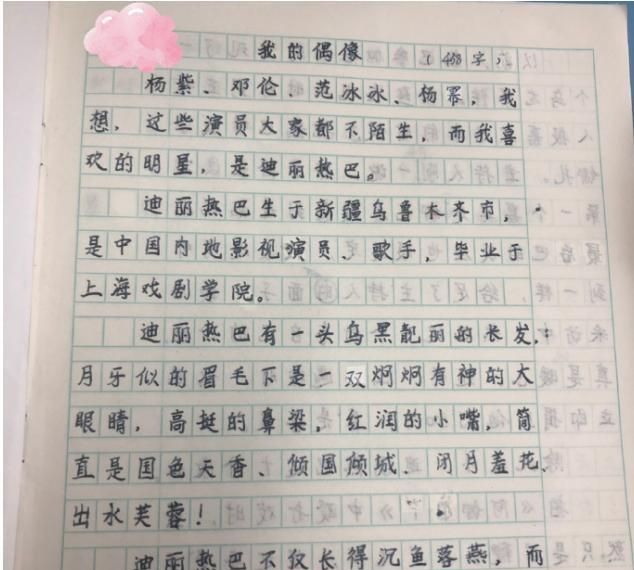 我的偶像 (488字)
杨紫、邓伦、范冰冰、杨幂，我
想，这些演员大家都不陌生，而我喜
欢的明星，是迪丽热巴。
迪丽热巴生于新疆乌鲁木齐市，
是中国内地影视演员、歌手，毕业于
上海戏剧学院。
迪丽热巴有一头乌黑靓丽的长发，
月牙似的眉毛下是一双炯炯有神的大
眼睛，高挺的鼻梁，红润的小嘴，简
直是国色天香、倾国倾城、闭月羞花、
出水芙蓉！
迪丽热巴不仅长得沉鱼落燕，而